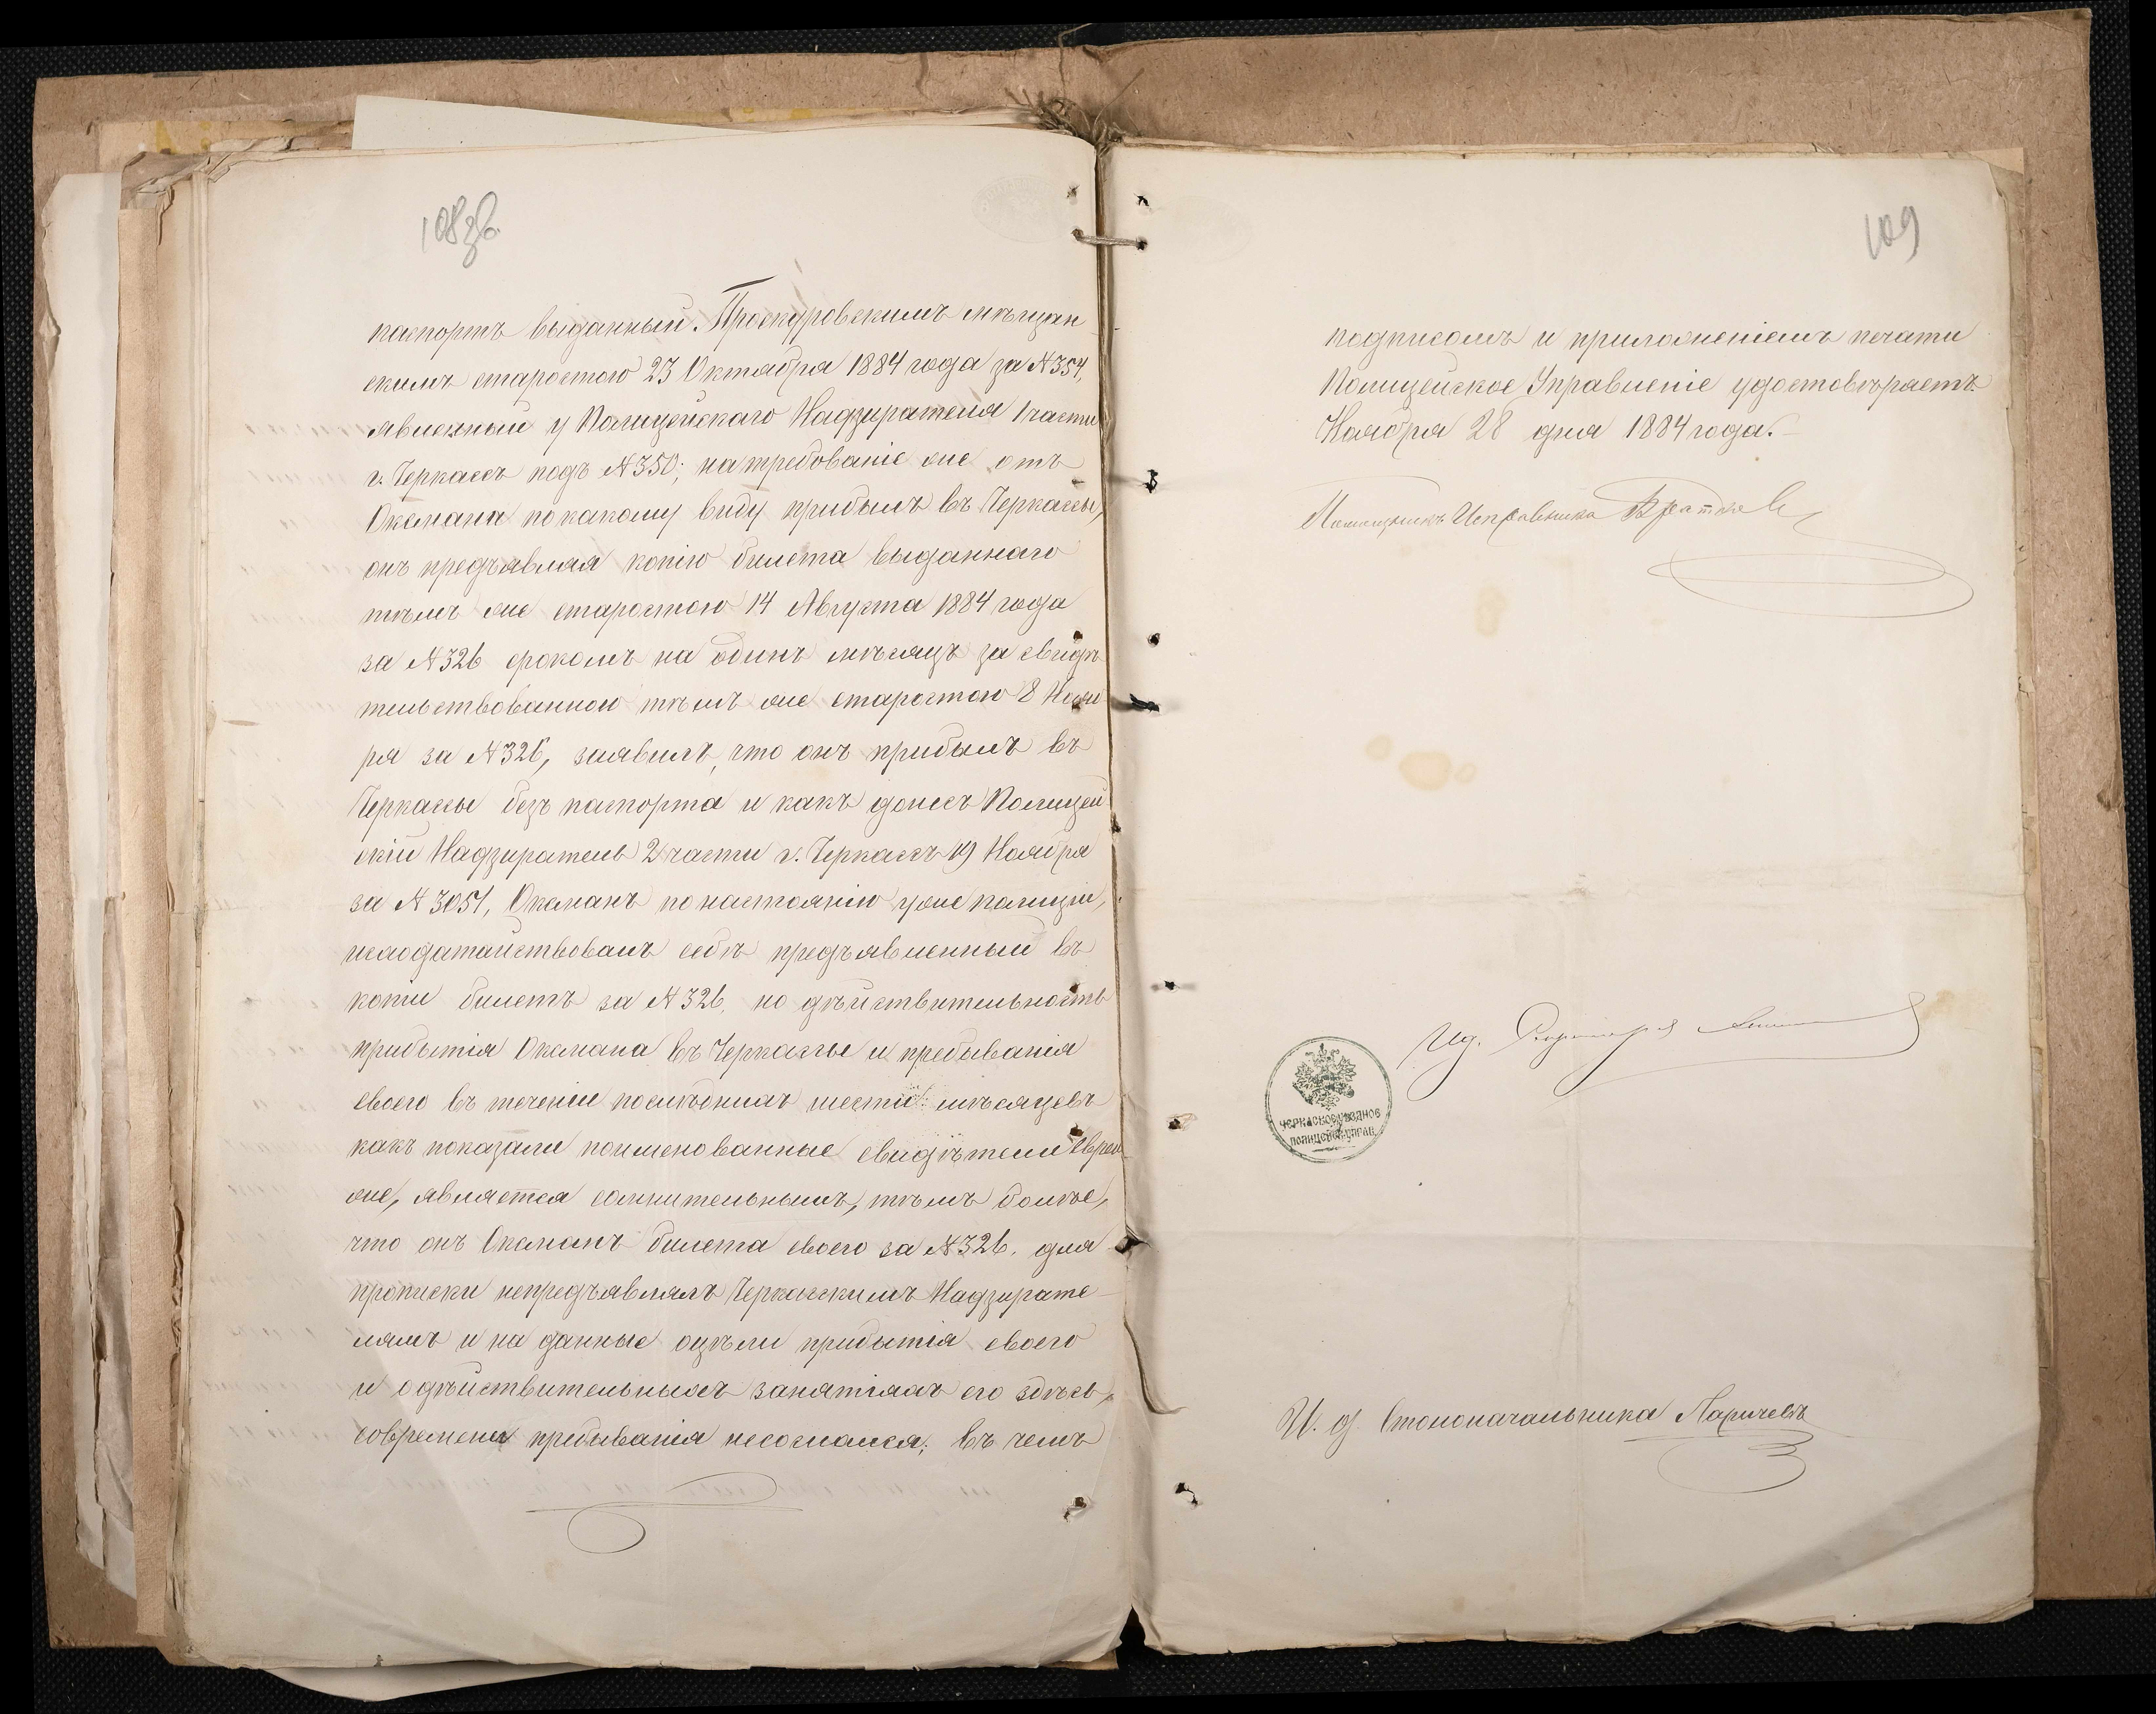 108 зв.
паспортъ выданный Проскуровскимъ мѣщан
скимъ старостою 23 Октября 1884 года за №354,
явленный у Полицейскаго Надзирателя 1 части
г. Черкассъ подъ №350; на требованіе же отъ
Оксмана по какому виду прибылъ въ Черкассы,
онъ предъявляя копію билета выданнаго
тѣмъ же старостою 14 Августа 1884 года
за №326 срокомъ на одинъ мѣсяцъ за свидѣ
тельствованною тѣмъ же старостою 8 Нояб
ря за №326, заявилъ, что онъ прибылъ въ
Черкассы безъ паспорта и какъ донесъ Полицей
скій Надзиратель 2 части г. Черкассъ 19 Ноября
за №3051, Оксманъ по настоянію уже полиціи,
исходатайствовалъ себѣ предъявленный въ
копіи билетъ за №326, но дѣйствительность
прибытія Оксмана въ Черкассы и пребыванія
своего въ теченіи послѣднихъ шести мѣсяцевъ
какъ показали поименованные свидѣтели Евреи
же, является сомнительнымъ, тѣмъ болѣе,
что онъ Оксманъ билета своего за №326. для
прописки непредъявлялъ Черкасскимъ Надзирате
лямъ и на данные оцѣли прибытія своего
и одѣйствительныхъ занятіяхъ его здѣсь,
современи пребыванія несослался; въ чемъ
109
подписомъ и приложеніемъ печати
Полицейское Управленіе удостовѣряетъ.
Ноября 28 дня 1884 года.
Помощникъ Исправника
И.д. Секретаря
ЧЕРКАСКОЕ УѢЗДНОЕ
ПОЛИЦЕЙСК. УПРАВ.
И. д. Столоначальника Ларичевъ